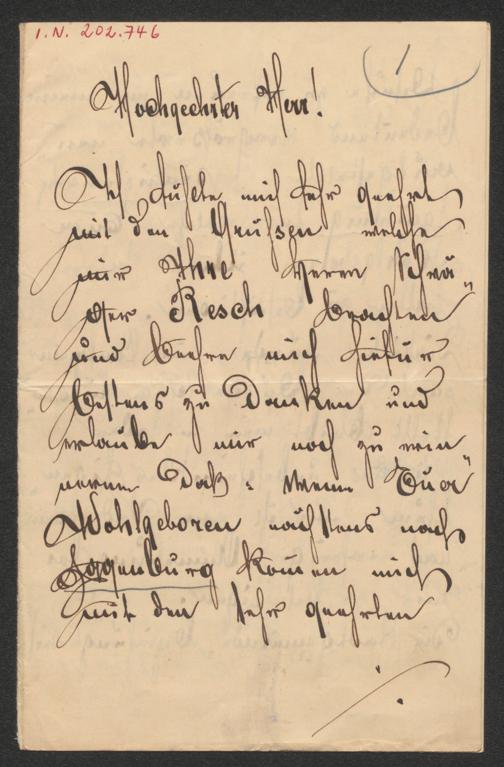 I.N. 202.746
1
Hochgeehrter Herr!
Ich fühlte mich sehr geehrt
mit den Grüßen welche
mir Ihre Herrn Schwä
ger Resch brachten
und beehre mich hiefür
bestens zu Danken und
erlaube mir noch zu erin
nern Daß, wenn Euer
Wohlgeboren nächstens nach
kom̅en mich
mit den sehr geehrten
./.